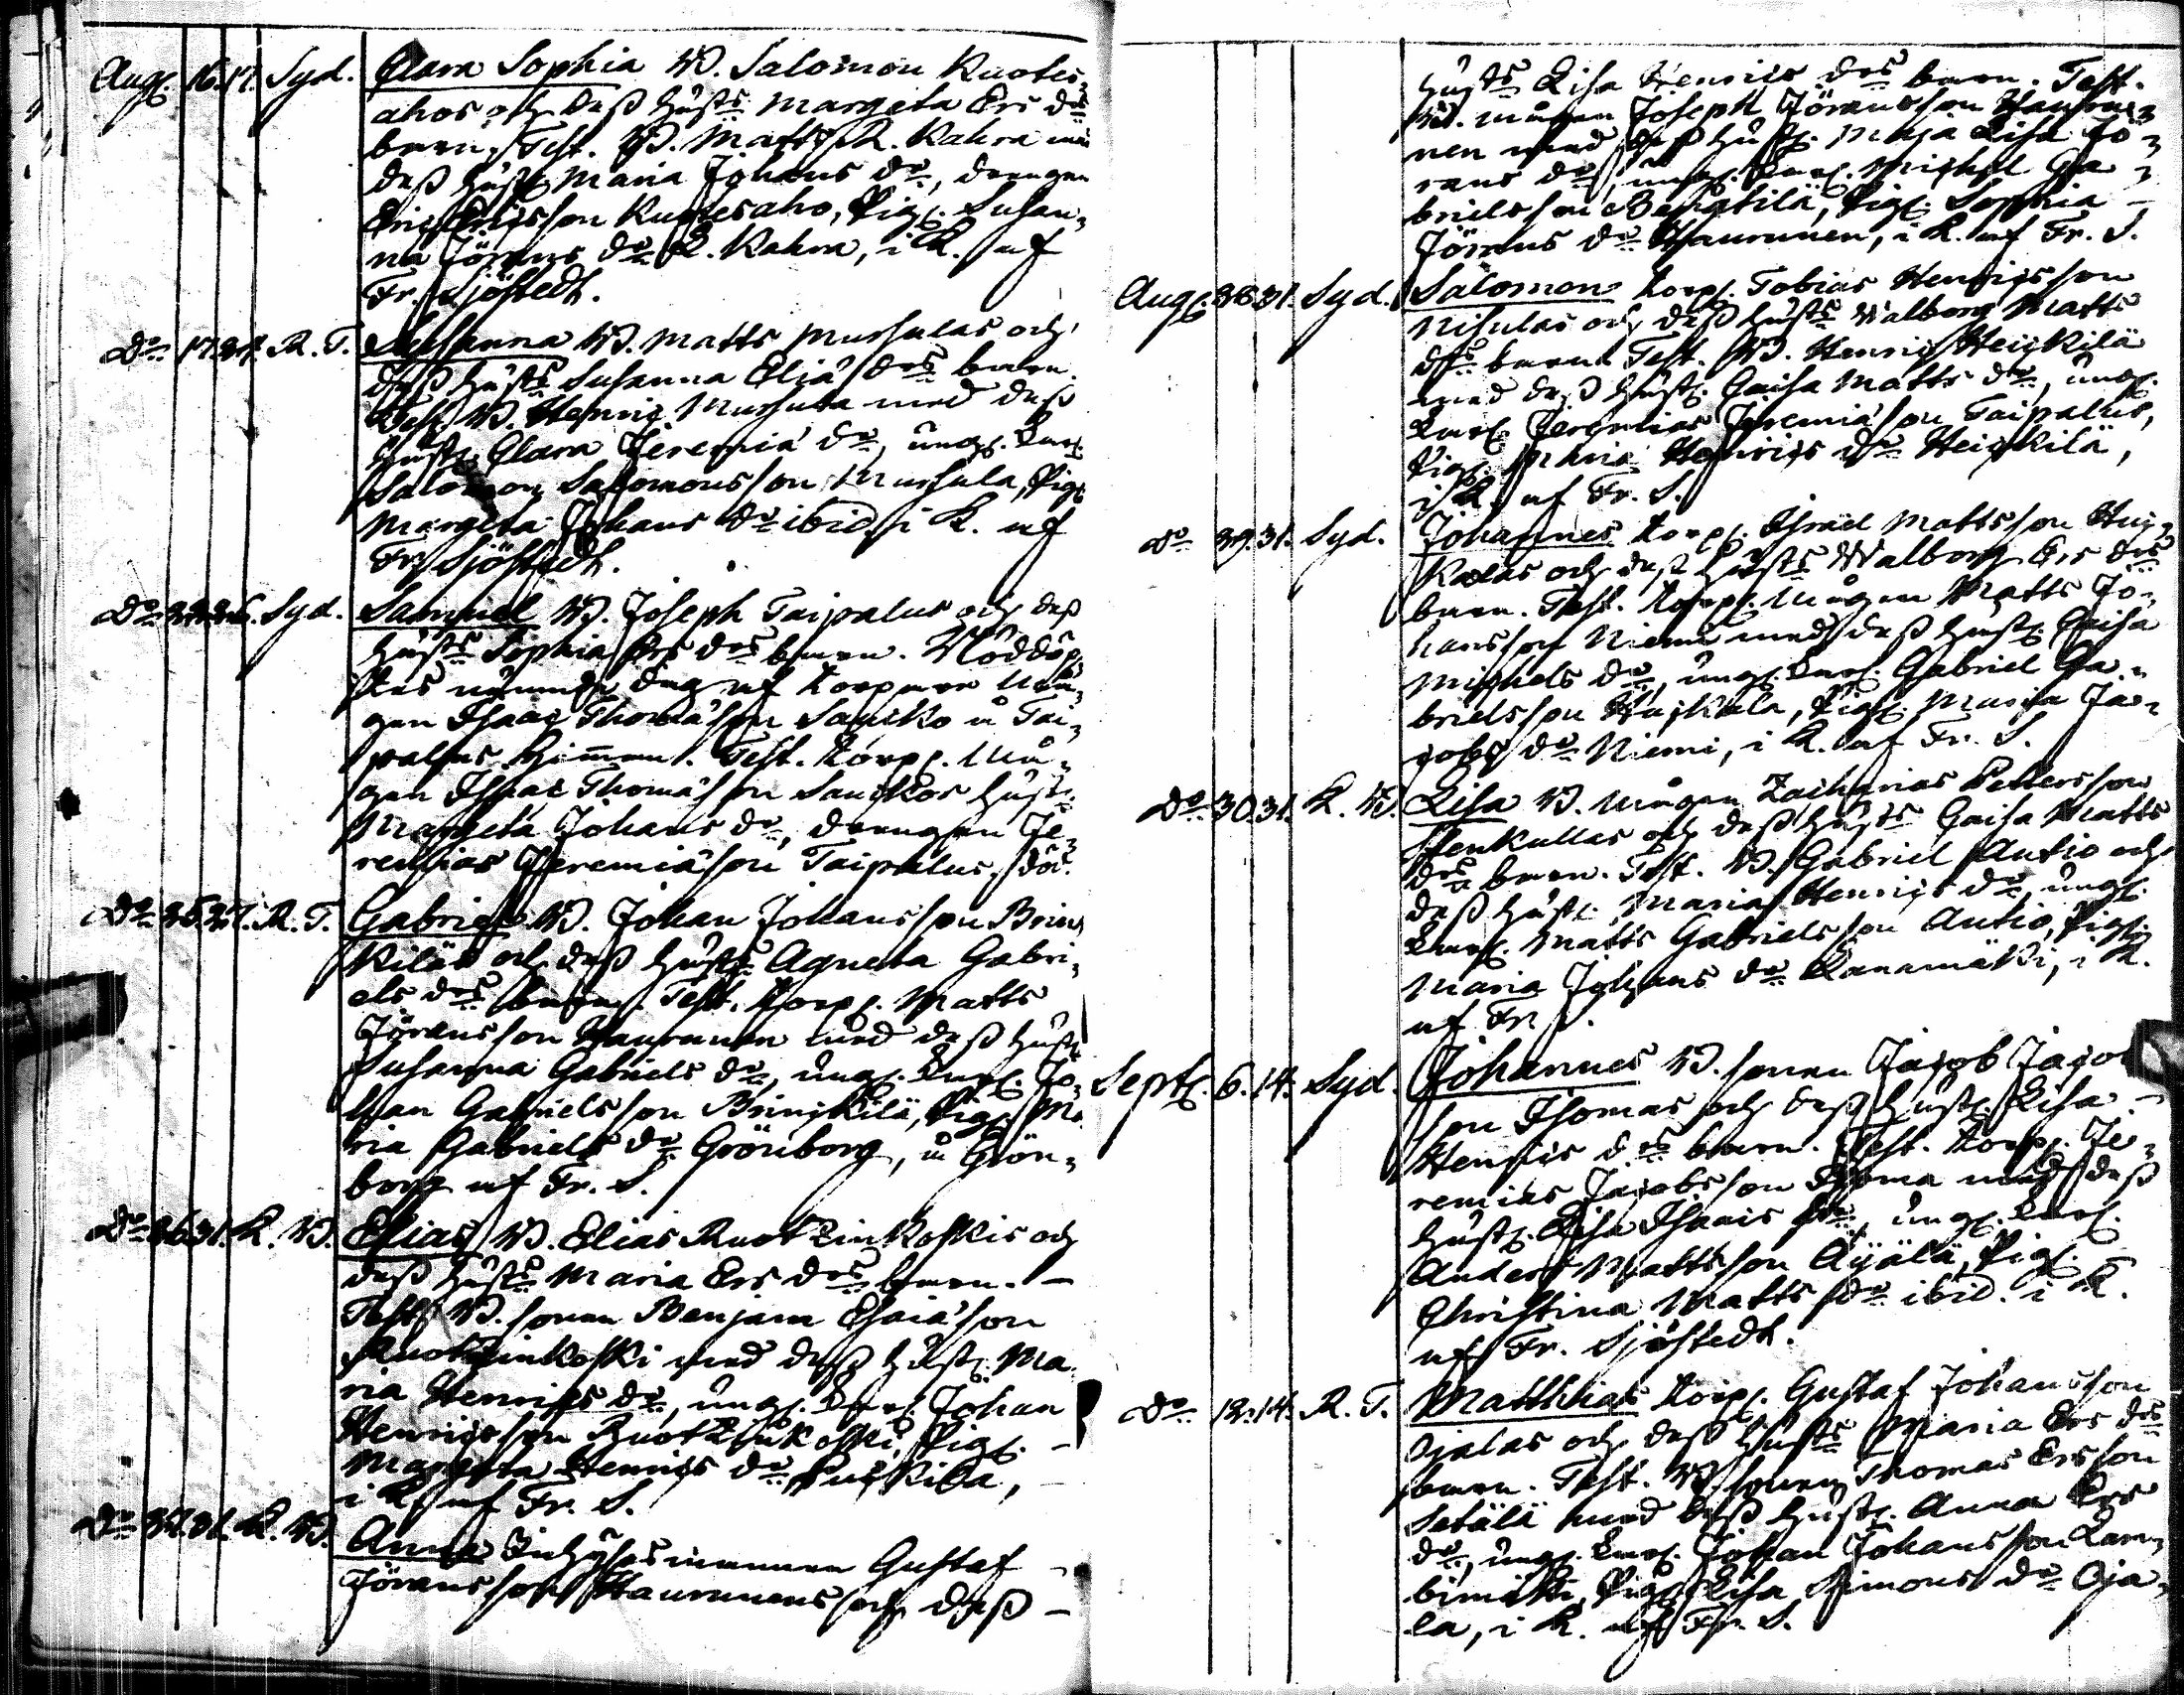 Aug. 16. 17. Syd. Clara Sophia B. Salomon Kuotes-
ahos och deß hust. Margeta Ers drs
barn. Test. B. Matts R. Kahra med
deß hust. Maria Johans dr, drengen
Eric Ericsson Kuotesaho, Pig. Susan-
na Jörans dr R. Kahra, i K. af
Fr. Sjöstedt.
Do 17. 24. R. T. Susanna B. Matts Mursulas och
deß husts Susanna Eliæ drs barn.
Test. B. Henric Mursula med deß
hust. Clara Jeremiæ dr, ung. Karl.
Salomon Salomonsson Mursula, Pig.
Margeta Johans dr ibid. i K. af
Fr. Sjöstedt.
Do Syd. Samuel B. Joseph Taipalus och deß
husts Sophia Ers drs barn. Nöddöp-
tes nämnde dag af Torpare Må-
gen Isaac Thomæson Saucko å Tai-
palus hemman. Test. Torp. Må-
gen Isaac Thomæson Sauckos hust.
Margeta Johans dr, drengen Je-
remias Jeremiæson Taipalus. död.
Do 25. 27. R. T. Gabriel B. Johan Johansson Brin-
kiläs och deß husts Agneta Gabri-
els drs barn. Test. Torp. Matts
Jöransson Haurunen med deß hust.
Susanna Gabriels dr, ung. Karl. Jo-
han Gabrielsson Brinckilä, Pig. Ma-
ria Gabriels dr Grönborg, å Grön-
borg af Fr. S.
Do 26. 31. K. B. Elias B. Elias Ruotzinkoskis och
deß husts Maria Ers drs barn. -
Test. B. sonen Benjam Esaiæson
Ruotzinkoski med deß hust. Ma-
ria Henrics dr, ung. Karl. Johan
Henricsson Ruotzinkoski, Pig. -
Margeta Henrics dr
i K. af Fr. S.
Do 27. 31. K. B. Anna Inhyses mannen Gustaf -
Jöransson Haurunens och deß -
husts Lisa Henrics drs barn. Test.
mågen Joseph Jöransson Hauru-
nen med deß hust. Maja Lisa Jö-
rans dr, ung. Karl. Michel Ga-
brielsson Pig. Sophia -
Jörans dr Haurunen, i K. af Fr. S.
Aug. 31. Syd. Salomon Torp. Tobias Henricsson
Nisulas och deß husts Walborg Matts
drs barn. Test. B. Henric Heickilä
med deß hust. Caisa Matts dr, ung.
Karl. Jeremias Jeremiæson Taipalus,
Pig. Maria Henrics dr Heickilä,
i K. af Fr. S.
Do 29. 31. Syd. Johannes Torp. Israel Mattsson Huc-
kalas och deß husts Walborg Ers drs
barn. Test. Torp. Mågen Matts Jo-
hansson Niemi med deß hust. Caisa
Michels dr, ung. Karl. Gabriel Ga-
brielsson Huckala, Pig. Maria Ja-
cobs dr Niemi, i K. af Fr. S.
Do 30. 31. K. B. Lisa B. Mågen Zacharias Pettersson
Penkullas och deß husts Caisa Matts
drs barn. Test. B. Gabriel Autio och
deß hust. Maria Henrics dr, ung.
Karl. Matts Gabrielsson Autio, Pig.
Maria Johans dr Kanamäki, i K.
af Fr. S.
Sept. 6. 14. Syd. Johannes B. sonen Jacob Jacob
son Thomas och deß hust. Lisa -
Henrics drs barn. Test. Torp. Je-
remias Jacobsson Thoma med deß
hust. Lisa Isaacs dr, ung. Karl.
Anders Mattsson Äijälä, Pig.
Christina Matts dr ibid. i K.
af Fr. Sjöstedt.
Do 12. 14. R. T. Matthias Torp. Gustaf Johansson
Ojalas och deß husts Maria Ers drs
barn. Test. B. sonen Thomas Ersson
Setälä med deß hust. Anna Ers
dr, ung. Karl. Johan Johansson Lam-
bimäki, Pig. Lisa Simons dr Oja-
la, i K. af Fr. S.